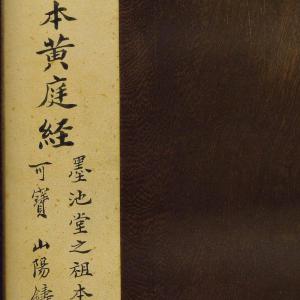 本黄庭経
墨池堂之祖本
可寶 山陽